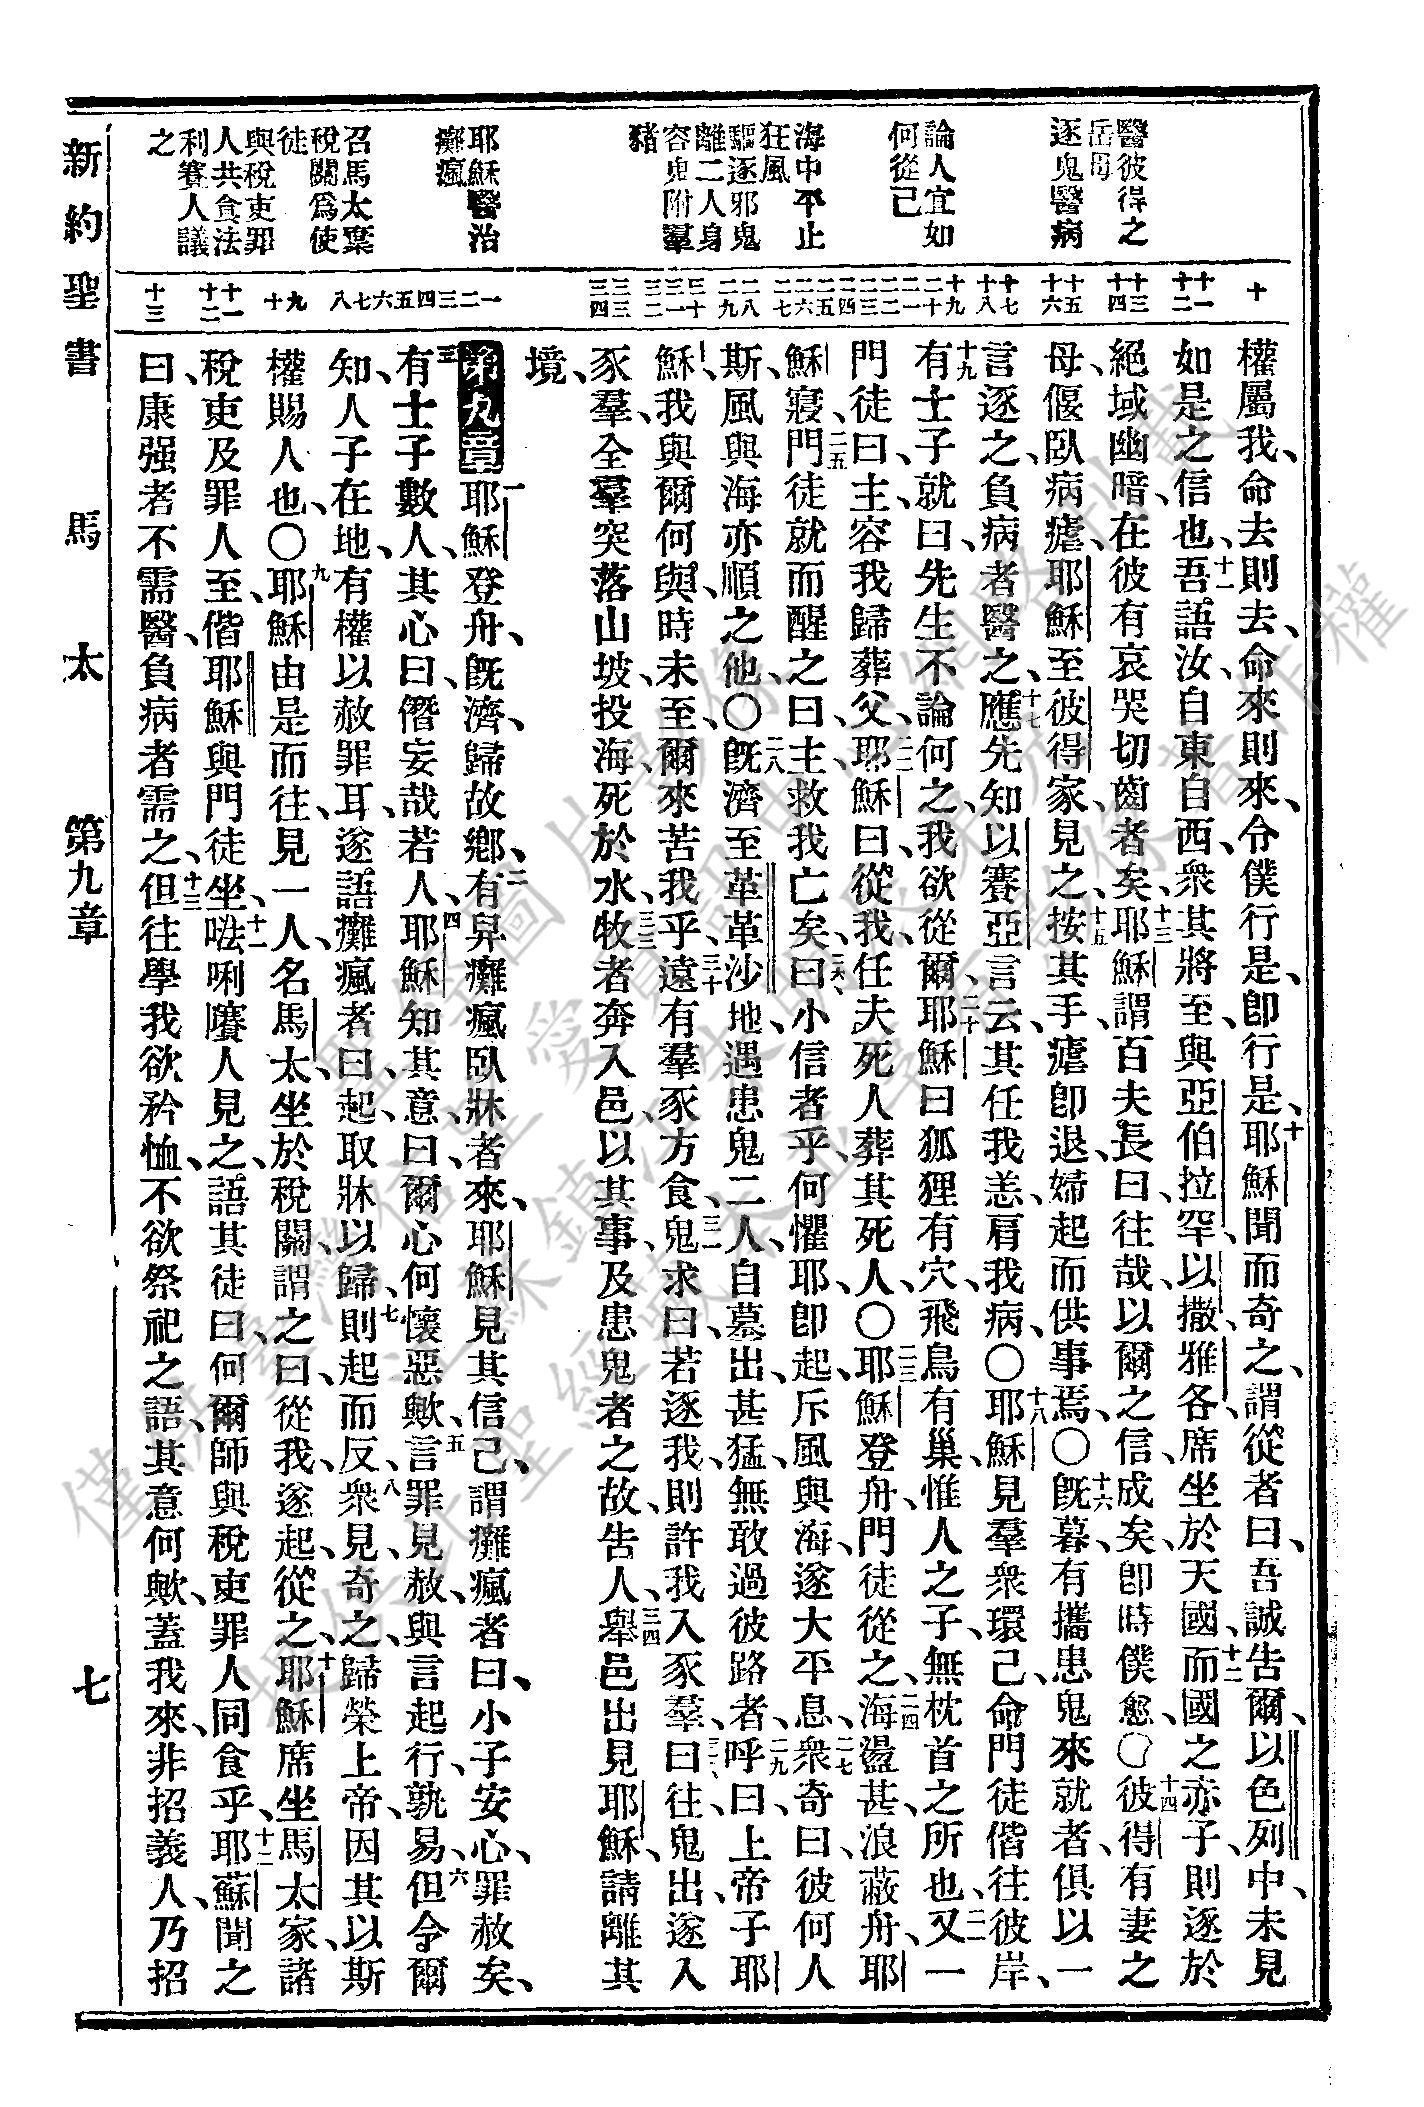 新約聖書 馬太 第九章 七
醫彼得之
岳母
逐鬼醫病
論人宜如
何從己
海中平止
狂風
驅逐邪鬼
離二人身
容鬼附羣
豬
耶穌醫治
癱瘋
召馬太棄
稅關爲使
徒
與稅吏罪
人共食法
利賽人議
之
十
十一
十二
十三
十四
十五
十六
十七
十八
十九
二十
二一
二二
二三
二四
二五
二六
二七
二八
二九
三十
三一
三二
三三
三四
一二三四五六七八
九
十
十一
十二
十三
權屬我、命去則去、命來則來、令僕行是、卽行是、十耶穌聞而奇之、謂從者曰、吾誠告爾、以色列中、未見
如是之信也、十一吾語汝、自東自西、衆其將至、與亞伯拉罕、以撒、雅各、席坐於天國、十二而國之亦子、則逐於
絕域幽暗、在彼有哀哭切齒者矣、十三耶穌謂百夫長曰、往哉、以爾之信成矣、卽時僕愈、〇十四彼得有妻之
母、偃臥病瘧、耶穌至彼得家、見之、十五按其手、瘧卽退、婦起而供事焉、〇十六旣暮、有攜患鬼來就者、俱以一
言逐之、負病者醫之、十七應先知以賽亞言云、其任我恙、肩我病、〇十八耶穌見羣衆環己、命門徒偕往彼岸、
十九有士子就曰、先生不論何之、我欲從爾、二十耶穌曰、狐狸有穴、飛鳥有巢、惟人之子、無枕首之所也、二一又一
門徒曰、主、容我歸葬父、二二耶穌曰、從我、任夫死人葬其死人、〇二三耶穌登舟、門徒從之、二四海盪甚、浪蔽舟、耶
穌寢、二五門徒就而醒之曰、主救我、亡矣、二六曰、小信者乎、何懼耶、卽起、斥風與海、遂大平息、二七衆奇曰、彼何人
斯、風與海亦順之他、〇二八旣濟、至革革沙地、遇患鬼二人、自墓出、甚猛、無敢過彼路者、二九呼曰、上帝子耶
穌、我與爾何與、時未至、爾來苦我乎、三十遠有羣豕方食、三一鬼求曰、若逐我、則許我入豕羣、三二曰、往、鬼出、遂入
豕羣、全羣突落山坡、投海、死於水、三三牧者奔入邑、以其事、及患鬼者之故、吿人、三四舉邑出見耶穌、請離其
境、
第九章 一耶穌登舟、旣濟、歸故鄉、二有舁癱瘋臥牀者來、耶穌見其信己、謂癱瘋者曰、小子安心、罪赦矣、
三有士子數人、其心曰、僭妄哉若人、四耶穌知其意、曰、爾心何懷惡歟、五言罪見赦、與言起行、孰易、六但令爾
知、人子在地、有權以赦罪耳、遂語癱瘋者曰、起、取牀以歸、七則起而反、八衆見奇之、歸榮上帝、因其以斯
權賜人也、〇九耶穌由是而往、見一人、名馬太、坐於稅關、謂之曰、從我、遂起、從之、十耶穌席坐馬太家、諸
稅吏及罪人至、偕耶穌與門徒坐、十一𠵽唎㘔人見之、語其徒曰、何爾師與稅吏罪人同食乎、十二耶蘇聞之
曰、康强者不需醫、負病者需之、十三但往學我欲矜恤、不欲祭祀之語、其意何歟、蓋我來、非招義人、乃招